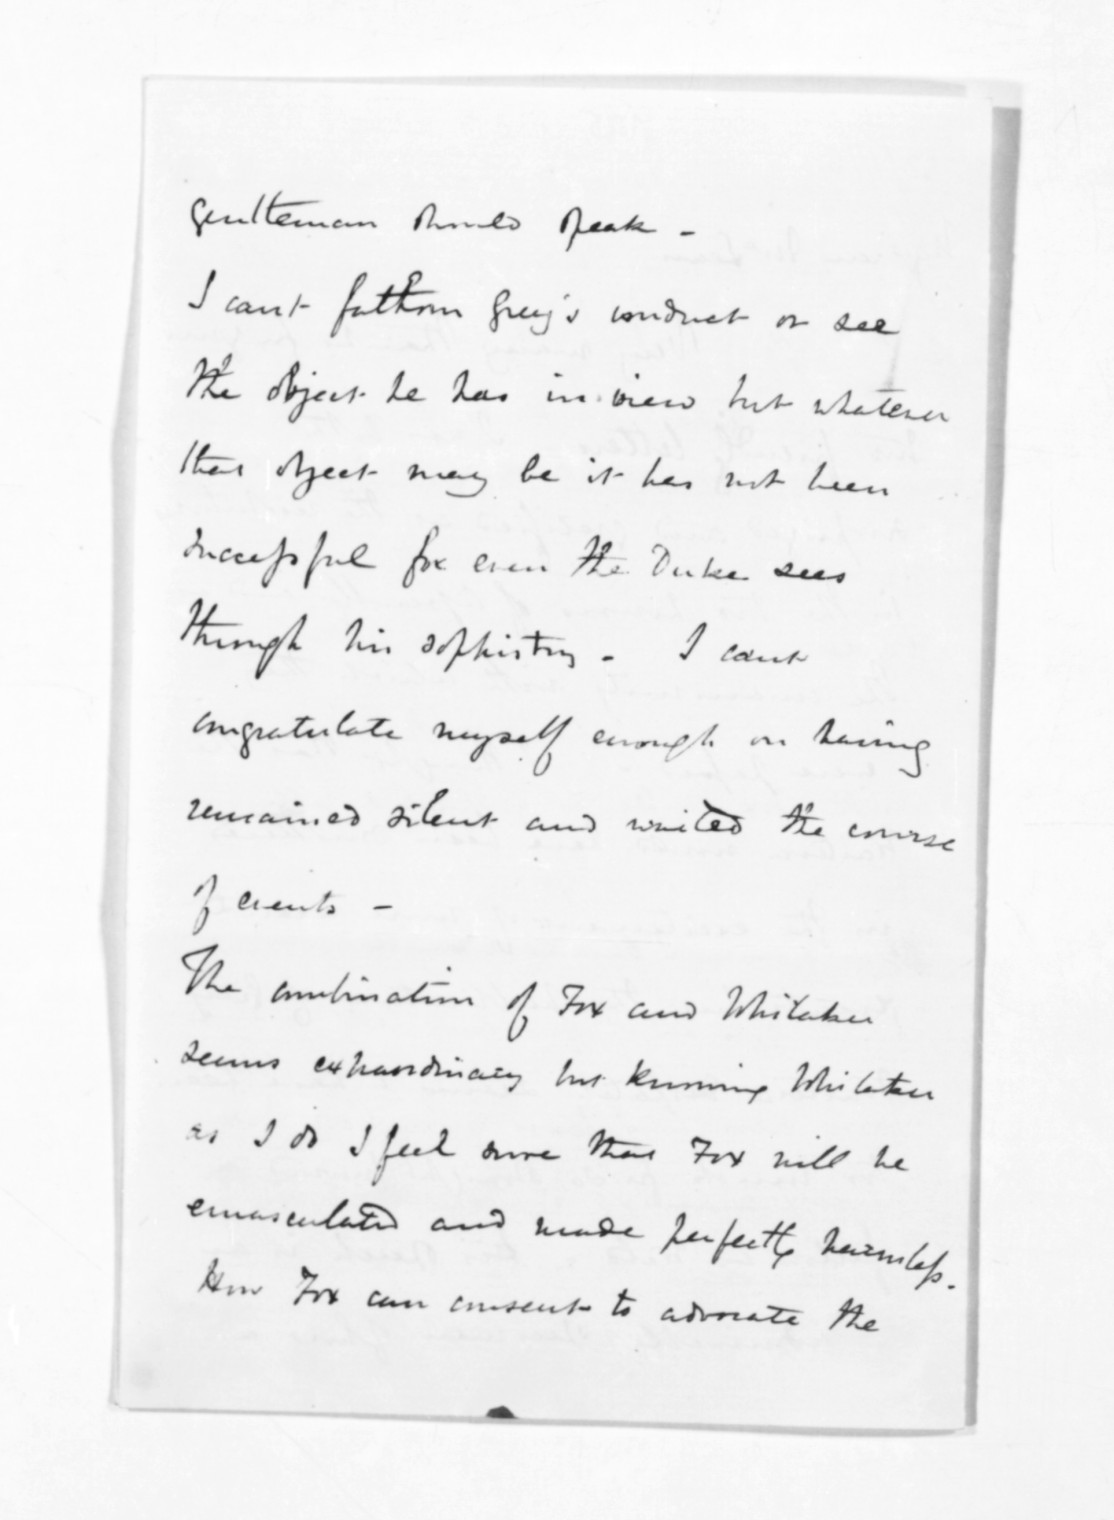 gentleman should speak -
I cant fathom Grey's conduct or see
the object he has in view but whatever
that object may be it has not been
successful for even the Duke sees
through his sophistry - I cant
congratulate myself enough on having
remained silent and waited the course
of events -
The combination of Fox and Whitaker
seems extraordinary but knowing Whitaker
as I do I feel sure that Fox will be
emasculated and made perfectly harmless.
How Fox can consent to advocate the